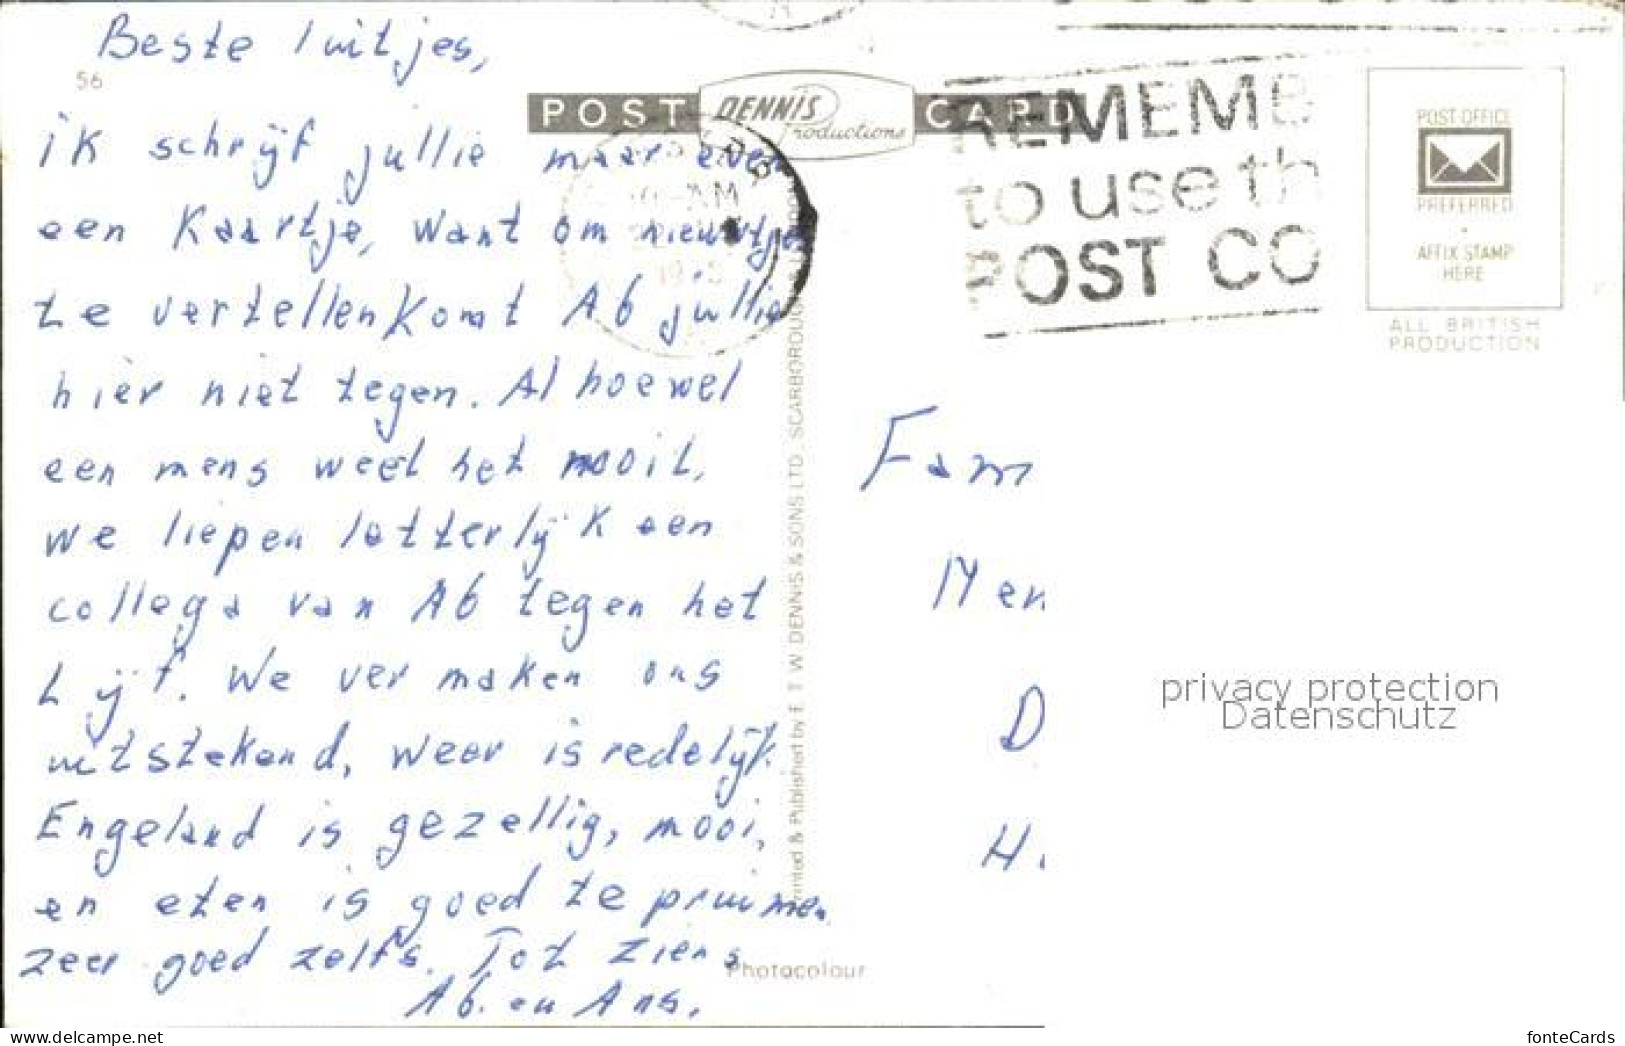 Beste luitjes,
56
ik schrijf jullie maar even
een kaartje, want om nieuwtjes
te vertellen komt Ab jullie
hier niet tegen. Al hoewel
een mens weet het nooit,
we liepen letterlijk een
collega van Ab tegen het
Lijf. We ver maken ons
uitstekend, weer is redelijk.
Engeland is gezellig, mooi,
en eten is goed te pruimen
zeer goed zelfs. Tot ziens
Ab. en Ans.
POST DENNIS Productions CARD
AM
REMEMB
to use th
POST CO
POST OFFICE
PREFERRED
AFFIX STAMP
HERE
ALL BRITISH
PRODUCTION
Printed & Published by E. T. W. DENNIS & SONS LTD., SCARBOROUGH
Photocolour
Fam
Men
D
H.
privacy protection
Datenschutz
www.delcampe.net
fonteCards